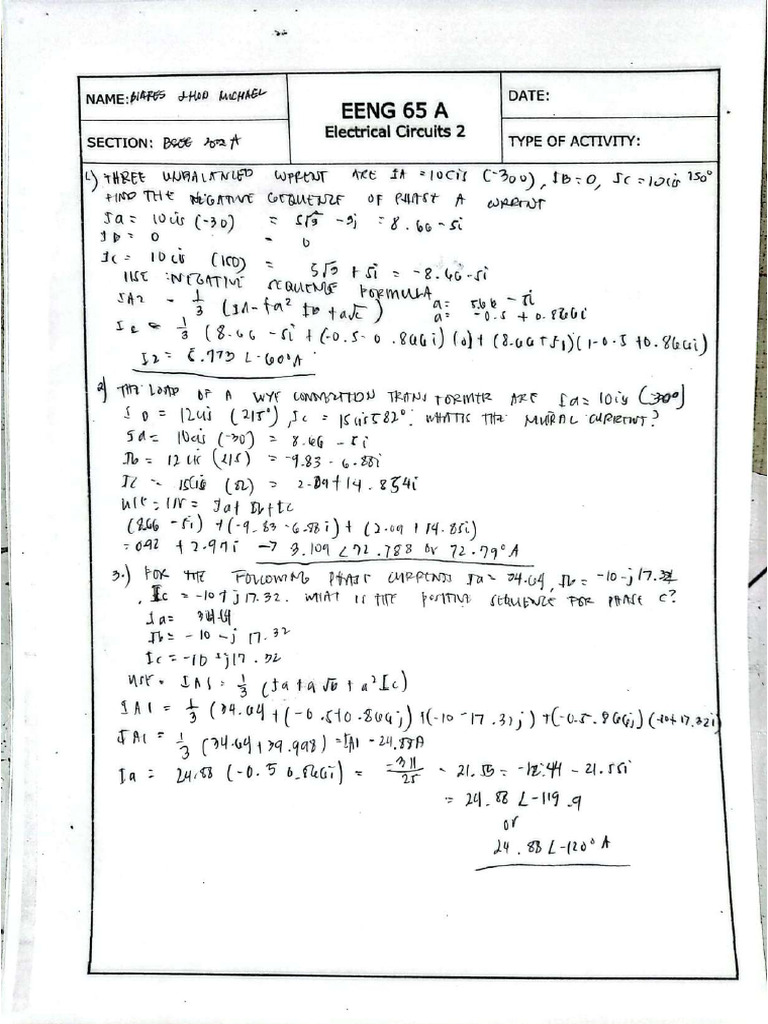 NAME: BIAPES JHOD MICHAEL
SECTION: BSEE 202 A
EENG 65 A
Electrical Circuits 2
DATE:
TYPE OF ACTIVITY:
1) THREE UNBALANCED CURRENT ARE IA = 10 cis (-300), IB = 0, IC = 10 cis 150°
FIND THE NEGATIVE SEQUENCE OF PHASE A CURRENT
Ia = 10 cis (-30) = 5√3 - 5j = 8.66 - 5i
Ib = 0 = 0
Ic = 10 cis (150) = 5√3 + 5i = -8.66 - 5i
USE NEGATIVE SEQUENCE FORMULA
IA2 = 1/3 (IA + a² Ib + aIc) a = 5.66 - 5i
a = -0.5 + 0.866i
I2 = 1/3 (8.66 - 5i + (-0.5 - 0.866i)(0) + (8.66 + 5i)(1-0.5 + 0.866i)
I2 = 5.773 ∠-60° A
2) THE LOAD OF A WYE CONNECTION TRANSFORMER ARE Ia = 10 cis (30°)
Ib = 12 cis (215°), Ic = 15 cis 582°. WHAT IS THE CURRENT?
Ia = 10 cis (-30) = 8.66 - 5i
Ib = 12 cis (215) = -9.83 - 6.88i
Ic = 15 cis (82) = 2.09 + 14.854i
USE = IN = Ia + Ib + Ic
(8.66 - 5i) + (-9.83 - 6.88i) + (2.09 + 14.85i)
= 0.92 + 2.97i → 3.109 ∠72.788 or 72.79° A
3.) FOR THE FOLLOWING PHASE CURRENTS Ia = 34.64, Ib = -10 - j17.32
, Ic = -10 + j17.32. WHAT IS THE POSITIVE SEQUENCE FOR PHASE C?
Ia = 34.64
Ib = -10 - j 17.32
Ic = -10 + j17.32
USE = IA1 = 1/3 (Ia + a Ib + a² Ic)
IA1 = 1/3 (34.64 + (-0.5+0.866j) + (-10 - 17.32j) + (-0.5.866j)(-10+17.32i)
IA1 = 1/3 (34.64 + 39.998) = IA1 = 24.88A
Ia = 24.88 (-0.5 0.866i) = -311/25 - 21.55 = -12.44 - 21.55i
= 24.88 ∠-119.9
or
24.88 ∠-120° A